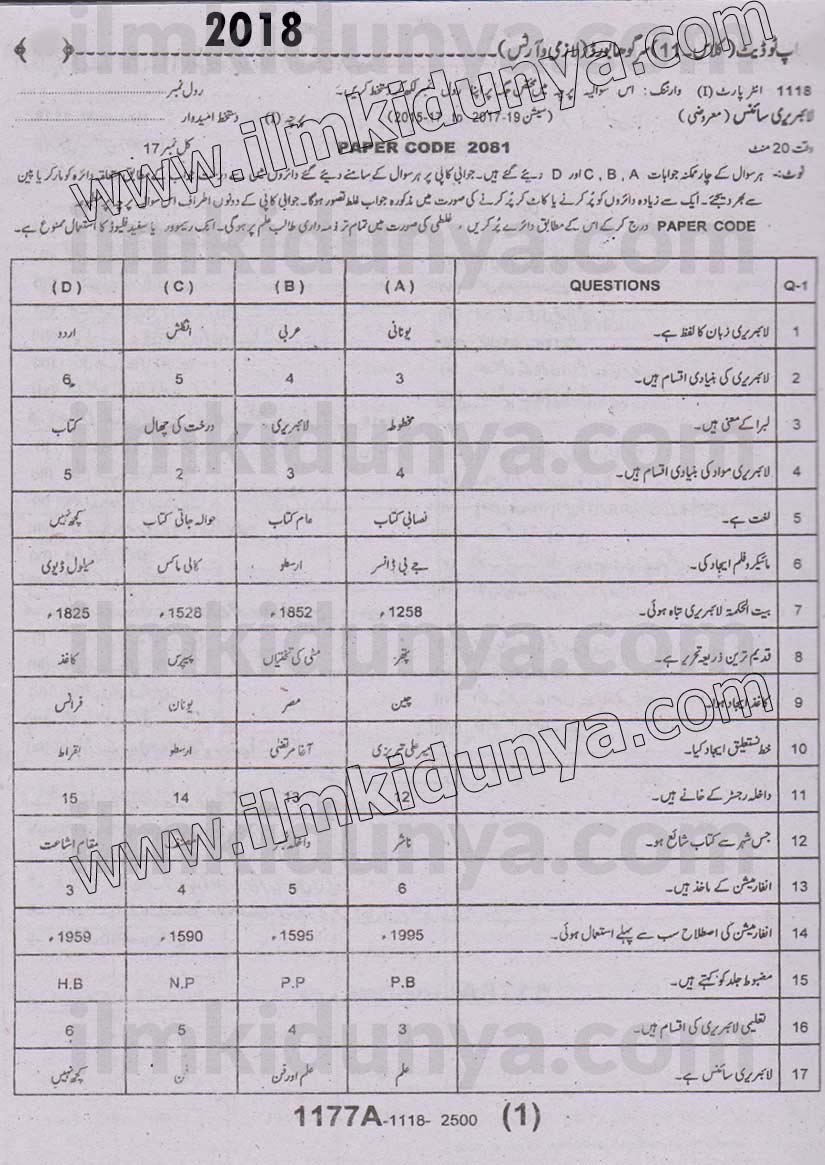 2018
پ ٹو ڈیٹ (کلاس 11) سرگودھا بورڈ (لازمی و آرٹس)
1118 انٹر پارٹ (I) وارننگ: اس سوالیہ پرچہ میں مختص جگہ پر اپنا رول نمبر لکھ کر دستخط کریں۔ رول نمبر
لائبریری سائنس (معروضی) (سیشن 2015-17 to 2017-19) پرچہ (I) دستخط امیدوار
وقت 20 منٹ PAPER CODE 2081 کل نمبر 17
نوٹ:- ہر سوال کے چار ممکنہ جوابات A ، B ، C اور D دیئے گئے ہیں۔ جوابی کاپی پر ہر سوال کے سامنے دیئے گئے دائروں میں سے درست جواب کے مطابق متعلقہ دائرہ کو مارکر یا پین
سے بھر دیجئے۔ ایک سے زیادہ دائروں کو پُر کرنے یا کاٹ کر پُر کرنے کی صورت میں مذکورہ جواب غلط تصور ہوگا۔ جوابی کاپی کے دونوں اطراف اس سوالیہ پرچہ پر
PAPER CODE درج کر کے اس کے مطابق دائرے پُر کریں ، غلطی کی صورت میں تمام تر ذمہ داری طالب علم پر ہوگی۔ انک ریموور یا سفید فلیوڈ کا استعمال ممنوع ہے۔
Q-1 QUESTIONS (A) (B) (C) (D)
1 لائبریری زبان کا لفظ ہے۔ یونانی عربی انگلش اردو
2 لائبریری کی بنیادی اقسام ہیں۔ 3 4 5 6
3 لبرا کے معنی ہیں۔ مخطوطہ لائبریری درخت کی چھال کتاب
4 لائبریری مواد کی بنیادی اقسام ہیں۔ 4 3 2 5
5 لغت ہے۔ نصابی کتاب عام کتاب حوالہ جاتی کتاب کچھ نہیں
6 مائیکرو فلم ایجاد کی۔ جے بی ڈانسر ارسطو کالی ماکس میلول ڈیوی
7 بیت الحکمۃ لائبریری تباہ ہوئی۔ 1258ء 1852ء 1528ء 1825ء
8 قدیم ترین ذریعہ تحریر ہے۔ پتھر مٹی کی تختیاں پیپرس کاغذ
9 کاغذ ایجاد ہوا۔ چین مصر یونان فرانس
10 خط نستعلیق ایجاد کیا۔ میر علی تبریزی آغا مرتضٰی ارسطو بقراط
11 داخلہ رجسٹر کے خانے ہیں۔ 12 13 14 15
12 جس شہر سے کتاب شائع ہو۔ ناشر داخلہ نمبر مصنف مقام اشاعت
13 انفارمیشن کے ماخذ ہیں۔ 6 5 4 3
14 انفارمیشن کی اصطلاح سب سے پہلے استعمال ہوئی۔ 1995ء 1595ء 1590ء 1959ء
15 مضبوط جلد کو کہتے ہیں۔ P.B P.P N.P H.B
16 تعلیمی لائبریری کی اقسام ہیں۔ 3 4 5 6
17 لائبریری سائنس ہے۔ علم علم اور فن فن کچھ نہیں
1177A-1118- 2500 (1)
www.ilmkidunya.com
www.ilmkidunya.com
ilmkidunya.com
ilmkidunya.com
ilmkidunya.com
ilmkidunya.com
ilmkidunya.com
ilmkidunya.com